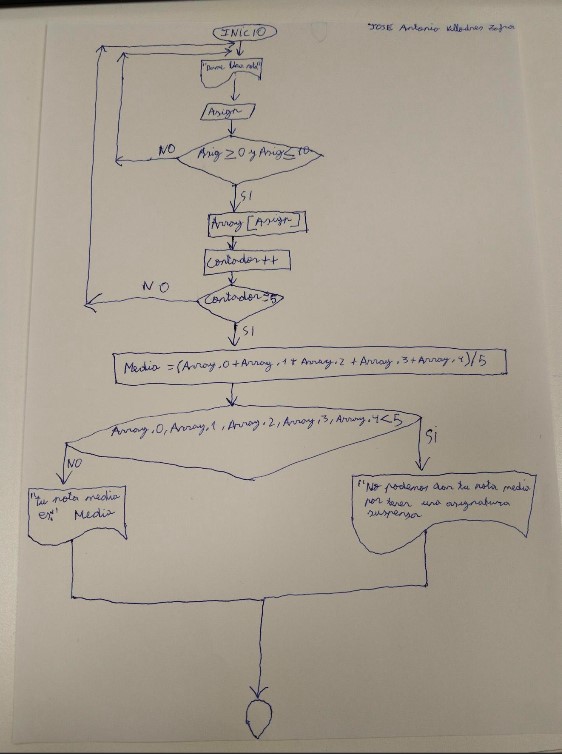 INICIO
JOSE Antonio
"Dame Una nota"
Asign
Asig ≥ 0 y Asig ≤ 10
NO
SI
Array [Asign]
Contador ++
NO
Contador = 5
SI
Media = (Array.0 + Array.1 + Array.2 + Array.3 + Array.4) / 5
Array.0, Array.1, Array.2, Array.3, Array.4 < 5
NO
SI
"Tu nota media
es:" Media
"No podemos dar tu nota media
por tener una asignatura
suspensa